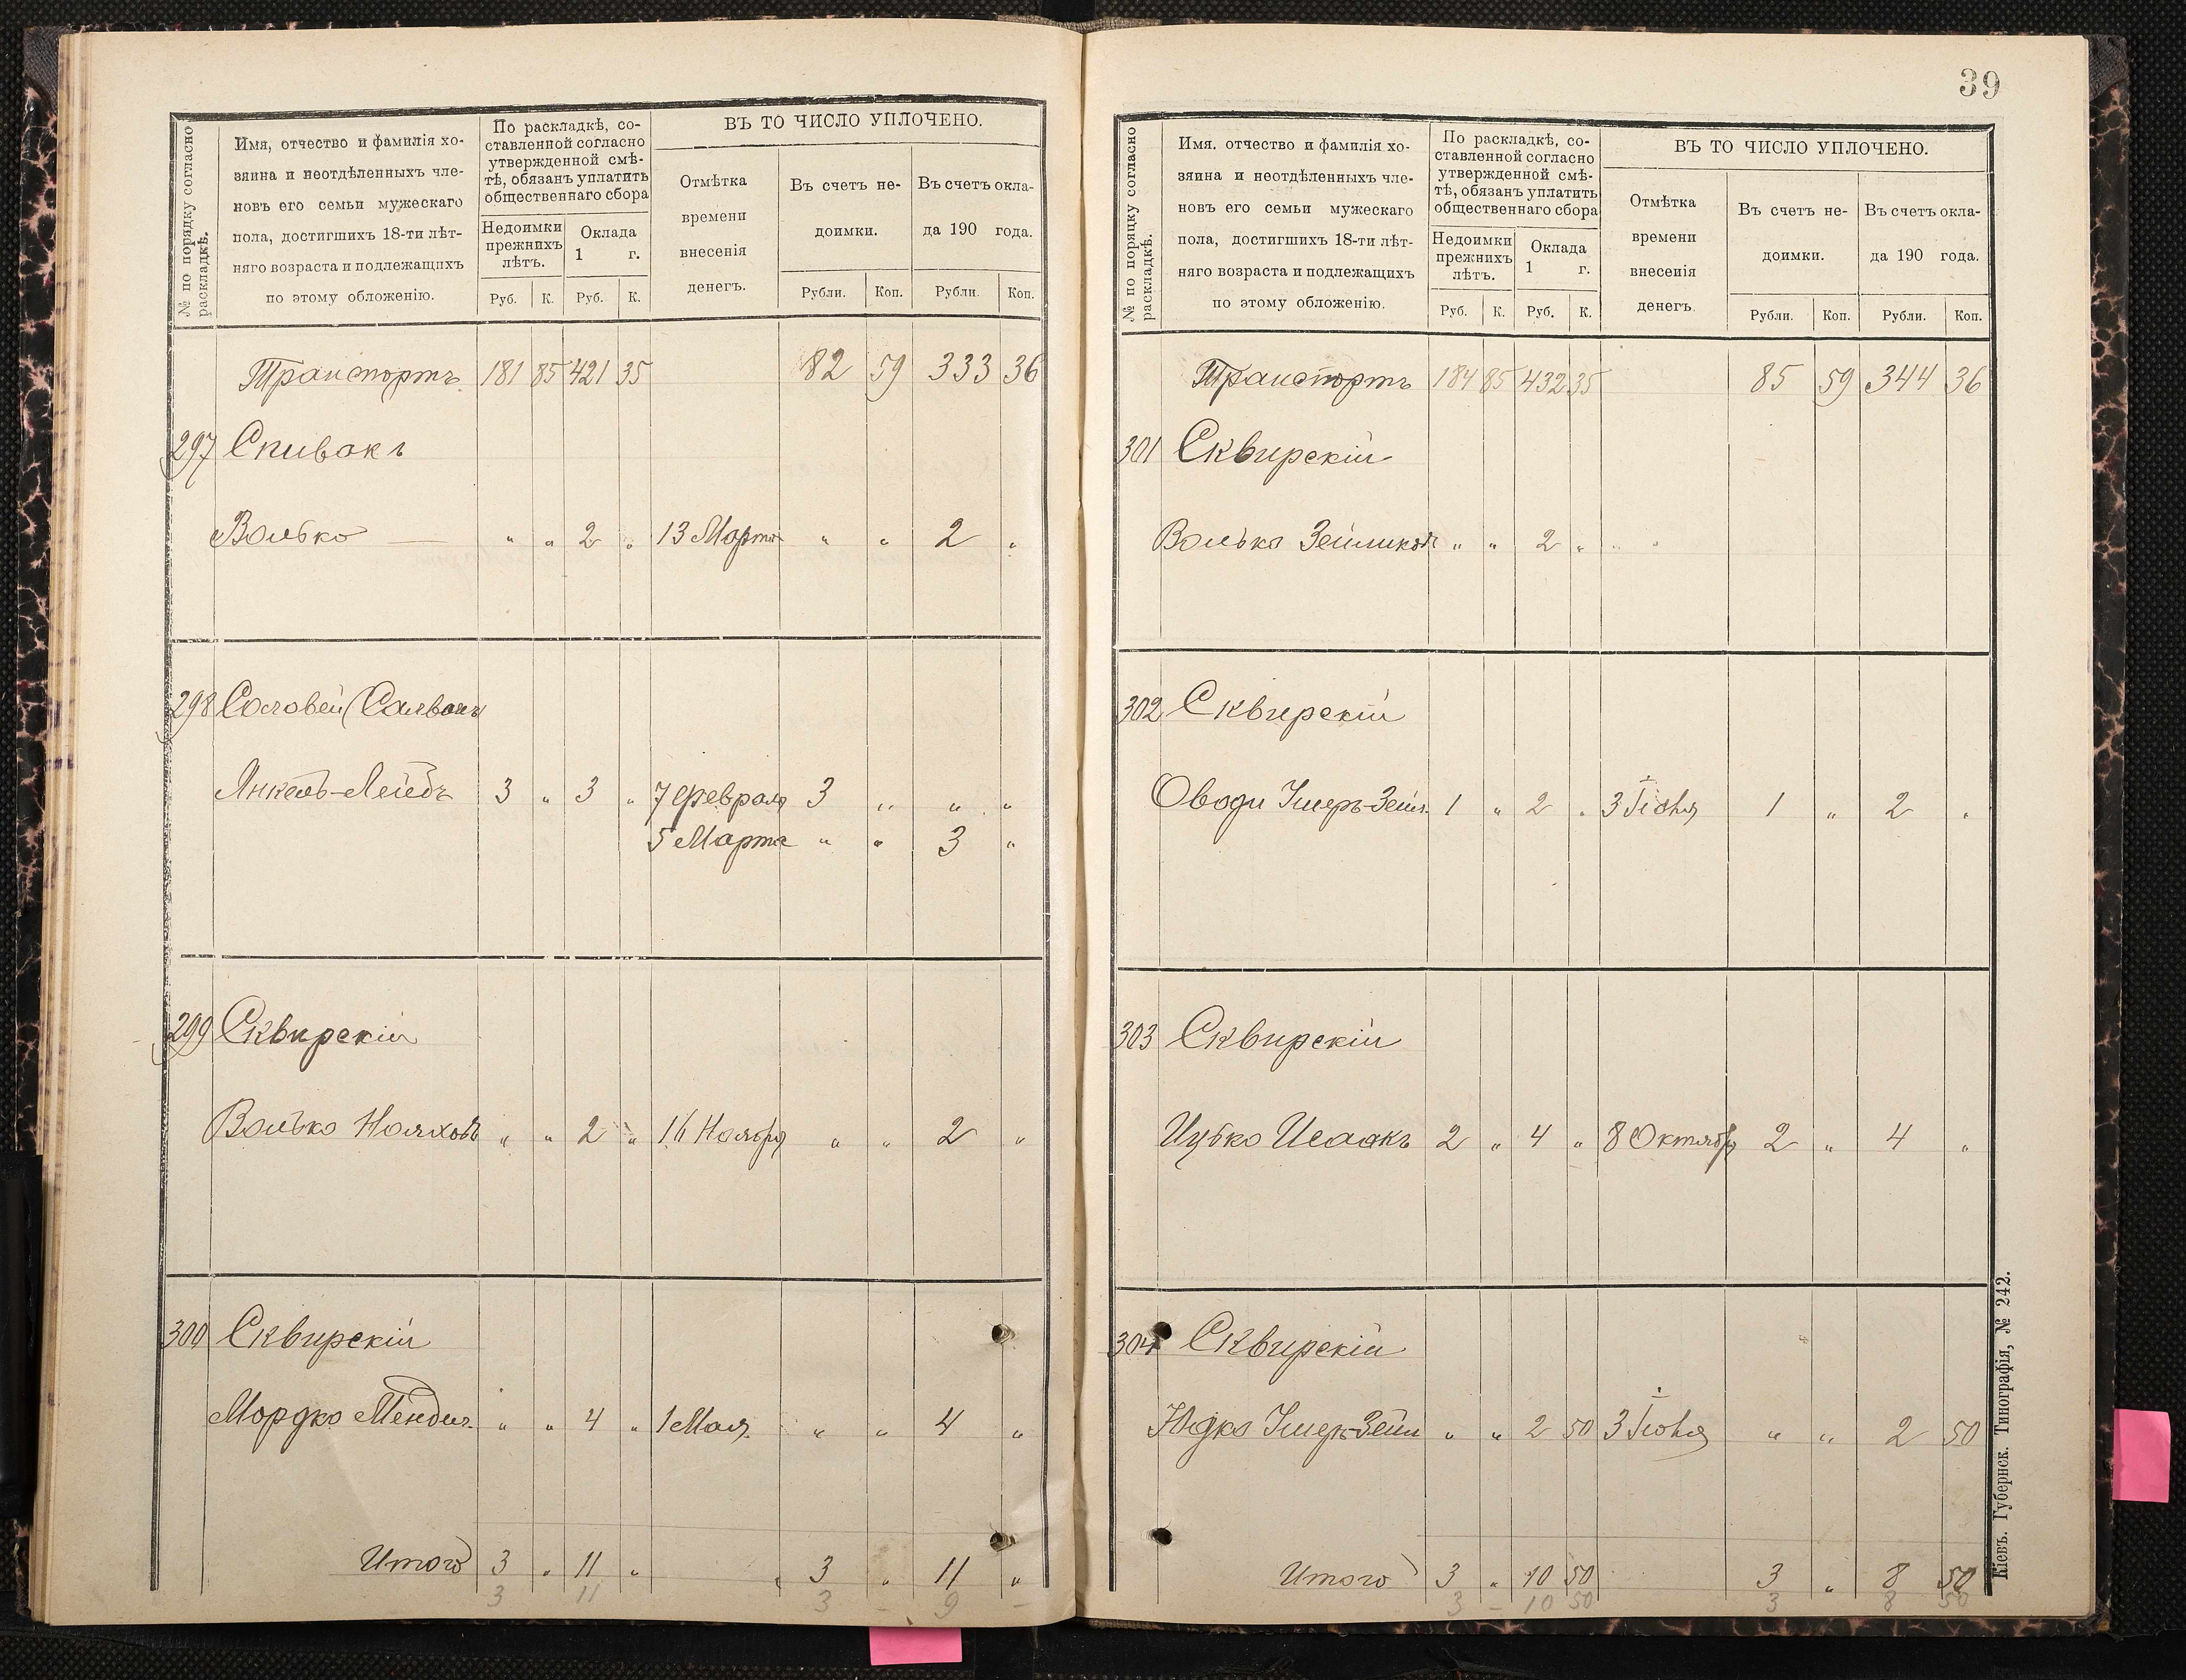 № по порядку согласно раскладкѣ.
Имя, отчество и фамилія хо-
зяина и неотдѣленныхъ чле-
новъ его семьи мужескаго
пола, достигшихъ 18-ти лѣт-
няго возраста и подлежащихъ
по этому обложенію.
По раскладкѣ, со-
ставленной согласно
утвержденной смѣ-
тѣ, обязанъ уплатить
общественнаго сбора
Недоимки
прежнихъ
лѣтъ.
Оклада
1 г.
Руб. К. Руб. К.
ВЪ ТО ЧИСЛО УПЛОЧЕНО.
Отмѣтка
времени
внесенія
денегъ.
Въ счетъ не-
доимки.
Въ счетъ окла-
да 190 года.
Рубли. Коп. Рубли. Коп.
Транспортъ 181 85 421 35 82 59 333 36
297 Спивакъ
Волько — " " 2 " 13 Марта " " 2 "
298 Соловей (Салвонъ
Янкель-Лейбъ 3 " 3 " 7 Февраля 3 " " "
5 Марта " " 3 "
299 Сквирскій
Волько " " 2 " 16 Ноября " " 2 "
300 Сквирскій
Мордко Мендел. " " 4 " 1 Мая " " 4 "
Итого 3 " 11 " 3 " 11 "
3 11 3 – 9 –
39
№ по порядку согласно раскладкѣ.
Имя. отчество и фамилія хо-
зяина и неотдѣленныхъ чле-
новъ его семьи мужескаго
пола, достигшихъ 18-ти лѣт-
няго возраста и подлежащихъ
по этому обложенію.
По раскладкѣ, со-
ставленной согласно
утвержденной смѣ-
тѣ, обязанъ уплатить
общественнаго сбора
Недоимки
прежнихъ
лѣтъ.
Оклада
1 г.
Руб. К. Руб. К.
ВЪ ТО ЧИСЛО УПЛОЧЕНО.
Отмѣтка
времени
внесенія
денегъ.
Въ счетъ не-
доимки.
Въ счетъ окла-
да 190 года.
Рубли. Коп. Рубли. Коп.
Транспортъ 184 85 432 35 85 59 344 36
301 Сквирскій
Волько Зейликов " " 2 "
302 Сквирскій
Овади Умер-Зейл. 1 " 2 " 3 Іюня 1 " 2 "
303 Сквирскій
Ицко Исаакъ 2 " 4 " 8 Октября 2 " 4 "
304 Сквирскій
Юдко Умер-Зейл " " 2 50 3 Іюня " " 2 50
Итого 3 " 10 50 3 " 8 50
3 – 10 50 3 8 50
Кіевъ. Губернск. Типографія, № 242.